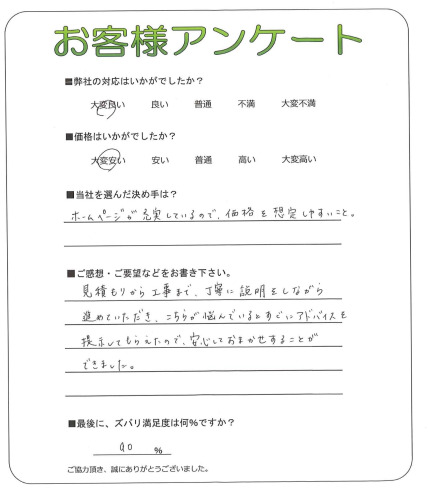 お客様アンケート
■弊社の対応はいかがでしたか？
大変良い 良い 普通 不満 大変不満
■価格はいかがでしたか？
大変安い 安い 普通 高い 大変高い
■当社を選んだ決め手は？
ホームページが充実しているので、価格を想定しやすいこと。
■ご感想・ご要望などをお書き下さい。
見積もりから工事まで、丁寧に説明をしながら
進めていただき、こちらが悩んでいるとすぐにアドバイスを
提示してもらえたので、安心しておまかせすることが
できました。
■最後に、ズバリ満足度は何%ですか？
90 %
ご協力頂き、誠にありがとうございました。